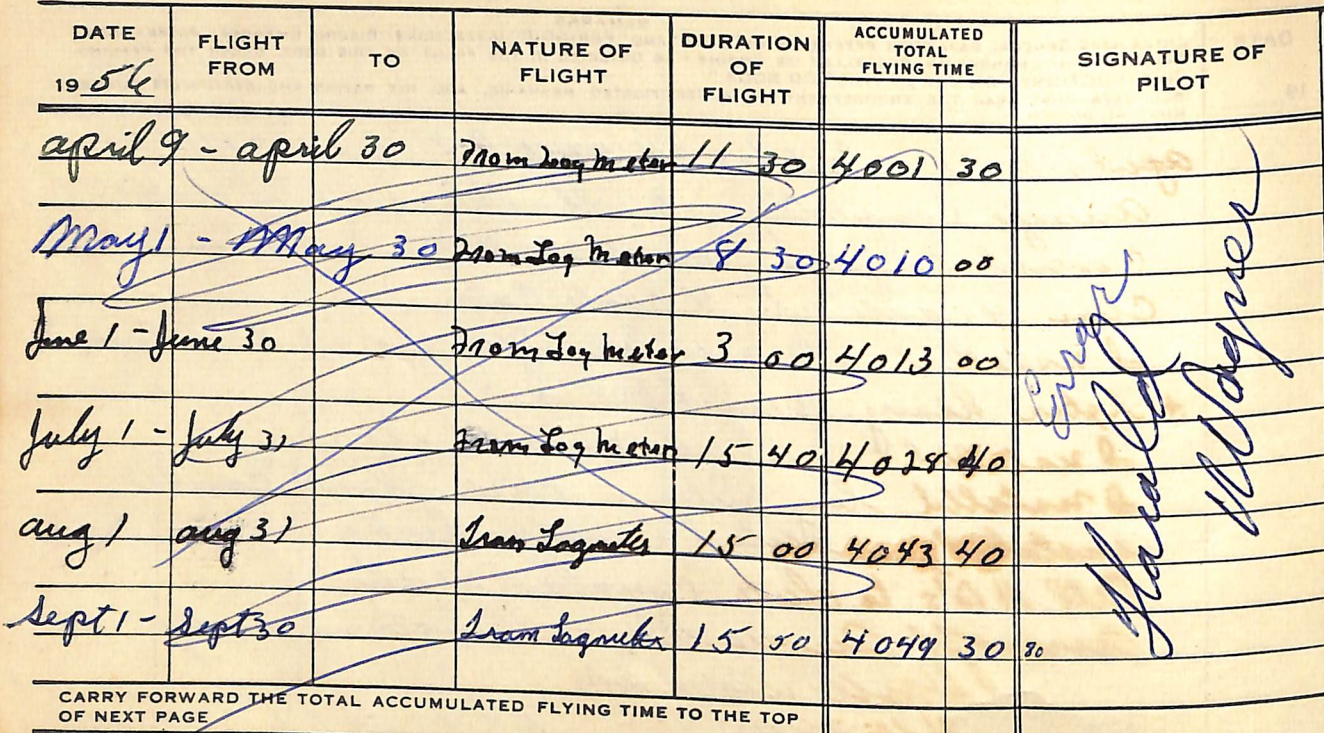 DATE FLIGHT FROM TO NATURE OF FLIGHT DURATION OF FLIGHT ACCUMULATED TOTAL FLYING TIME SIGNATURE OF PILOT
19 56
april 9 - april 30 From Log Meter 11 30 4001 30
May 1 - May 30 From Log Meter 8 30 4010 00
June 1 - June 30 From Log Meter 3 00 4013 00
July 1 - July 31 From Log Meter 15 40 4028 40
aug 1 aug 31 From Logmeter 15 00 4043 40
Sept 1 - Sept 30 From Logmeter 15 50 4049 30
Error
Harold Wagner
CARRY FORWARD THE TOTAL ACCUMULATED FLYING TIME TO THE TOP
OF NEXT PAGE